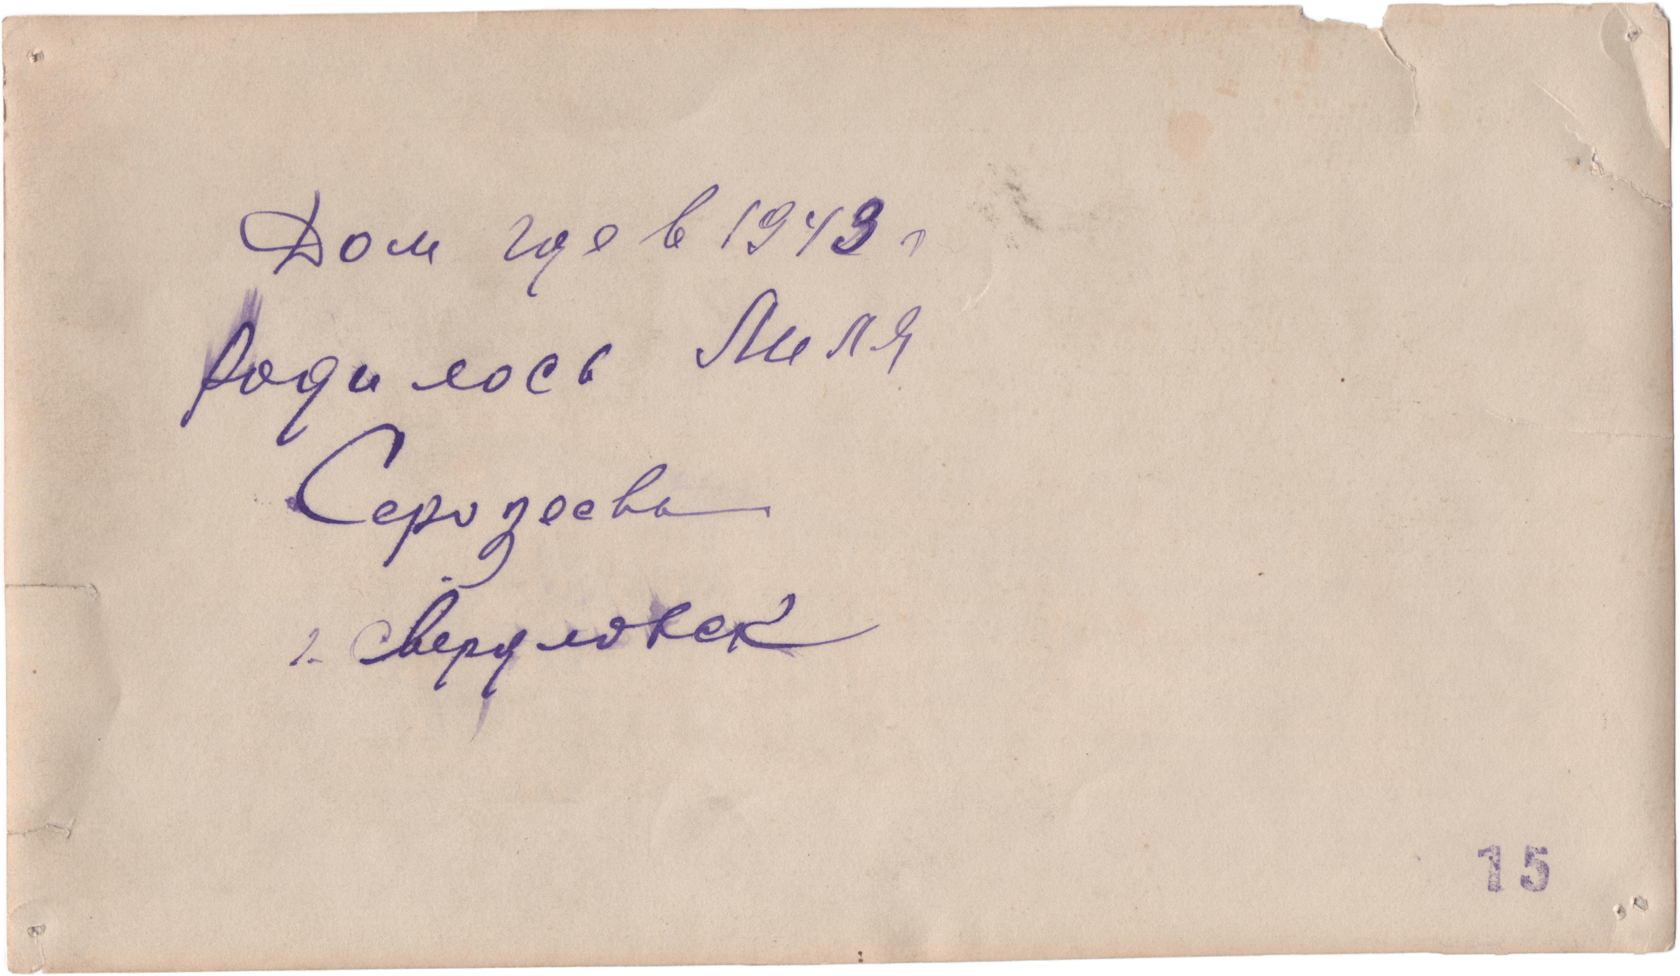 Дом где в 1943 г
родилось Лиля
Серозеева
г. Свердловск
15